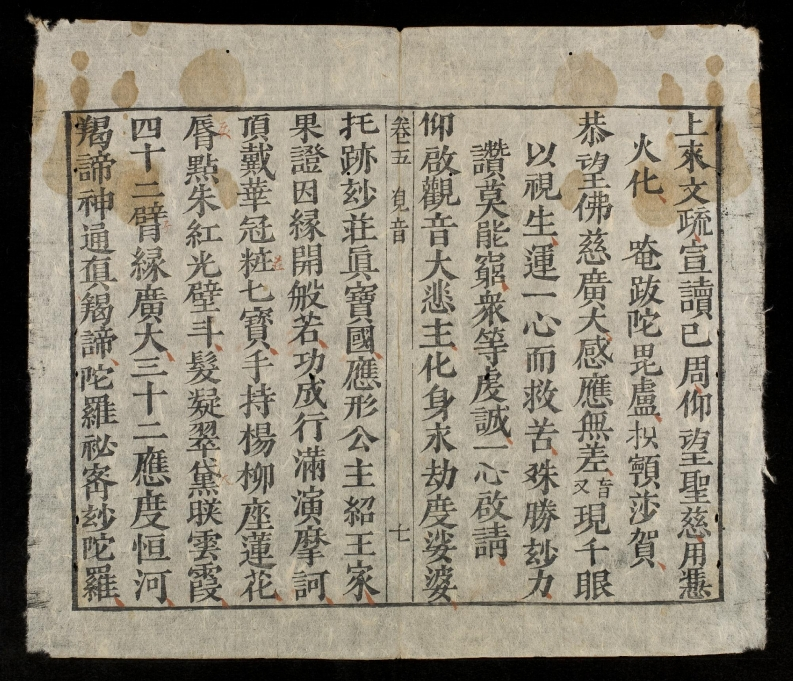 上來文疏宣讀已周仰望聖慈用憑
火化 唵跋陀毘盧枳顐莎賀
恭望佛慈廣大感應無差音又現千眼
以視生運一心而救苦殊勝玅力
讚莫能窮衆等虔誠一心啟請
仰啟觀音大悲主化身永劫度娑婆
卷五 覓音 七
托跡玅莊眞寶國應形公主紹王家
果證因緣開般若功成行滿演摩訶
頂戴華冠粧七寶手持楊柳座蓮花
脣點朱紅光壁斗髮凝翠黛暎雲霞
四十二臂緣廣大三十二應度恒河
羯諦神通眞羯諦陀羅祕密玅陀羅